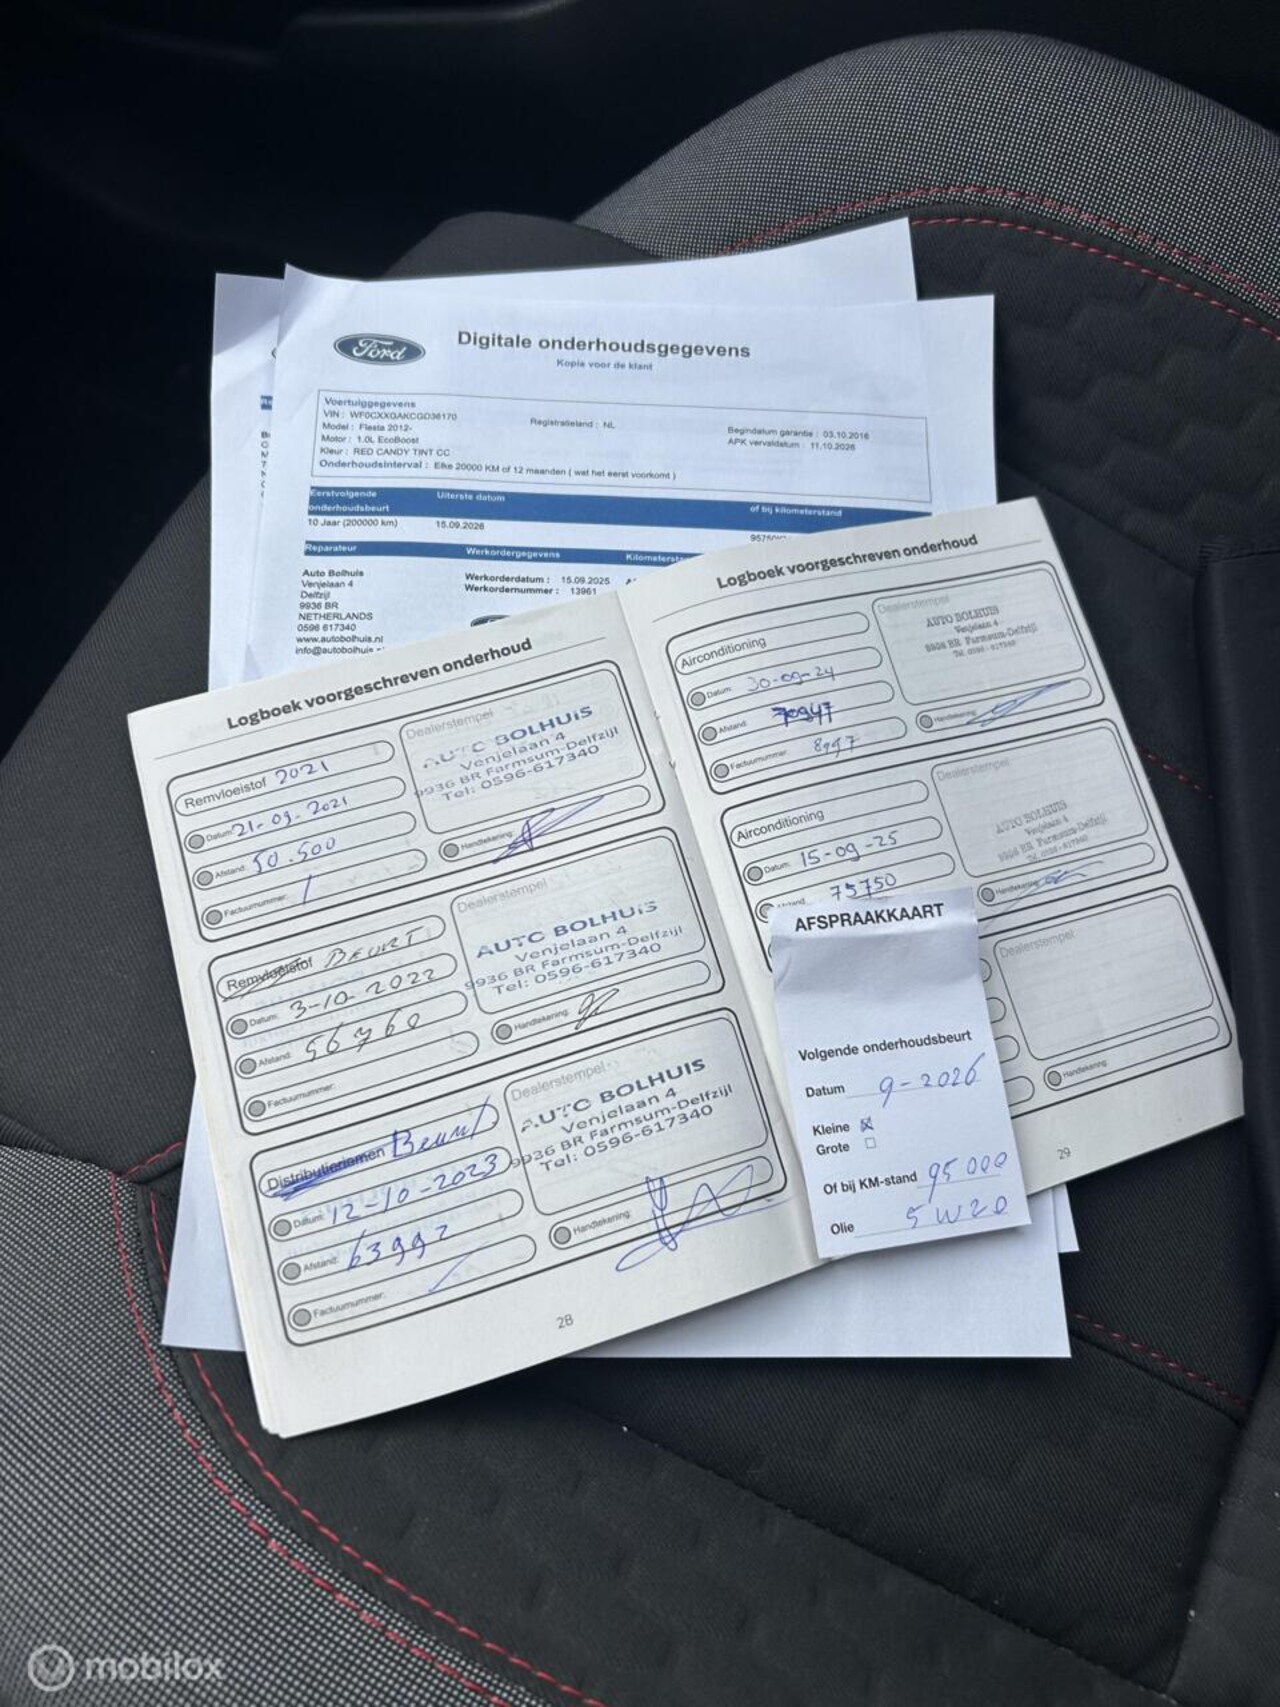 Ford
Digitale onderhoudsgegevens
Kopie voor de klant
Voertuiggegevens
VIN : WF0CXXGAKCGD36170
Registratieland : NL
Model : Fiesta 2012-
Begindatum garantie : 03.10.2016
Motor : 1.0L EcoBoost
APK vervaldatum : 11.10.2026
Kleur : RED CANDY TINT CC
Onderhoudsinterval : Elke 20000 KM of 12 maanden ( wat het eerst voorkomt )
Eerstvolgende onderhoudsbeurt
Uiterste datum
of bij kilometerstand
10 Jaar (200000 km)
15.09.2026
Reparateur
Werkordergegevens
Auto Bolhuis
Venjelaan 4
Delfzijl
9936 BR
NETHERLANDS
0596 617340
www.autobolhuis.nl
Werkorderdatum : 15.09.2025
Werkordernummer : 13961
Logboek voorgeschreven onderhoud
Remvloeistof 2021
Datum: 21-09-2021
Afstand: 50.500
Factuurnummer: /
Dealerstempel
AUTO BOLHUIS
Venjelaan 4
9936 BR Farmsum-Delfzijl
Tel: 0596-617340
Handtekening:
Remvloeistof BEURT
Datum: 3-10-2022
Afstand: 56760
Factuurnummer:
Dealerstempel
AUTO BOLHUIS
Venjelaan 4
9936 BR Farmsum-Delfzijl
Tel: 0596-617340
Handtekening:
Distributieriemen Beurt
Datum: 12-10-2023
Afstand: 63992
Factuurnummer:
Dealerstempel
AUTO BOLHUIS
Venjelaan 4
9936 BR Farmsum-Delfzijl
Tel: 0596-617340
Handtekening:
28
Logboek voorgeschreven onderhoud
Airconditioning
Datum: 30-09-24
Afstand: 70947
Factuurnummer: 8997
Dealerstempel
AUTO BOLHUIS
Venjelaan 4
9936 BR Farmsum-Delfzijl
Tel. 0596-617340
Handtekening:
Airconditioning
Datum: 15-09-25
Afstand: 75750
Dealerstempel
AUTO BOLHUIS
Venjelaan 4
9936 BR Farmsum-Delfzijl
Tel. 0596-617340
Handtekening:
Dealerstempel
Handtekening:
29
AFSPRAAKKAART
Volgende onderhoudsbeurt
Datum 9-2026
Kleine
Grote
Of bij KM-stand 95000
Olie 5W20
mobilox